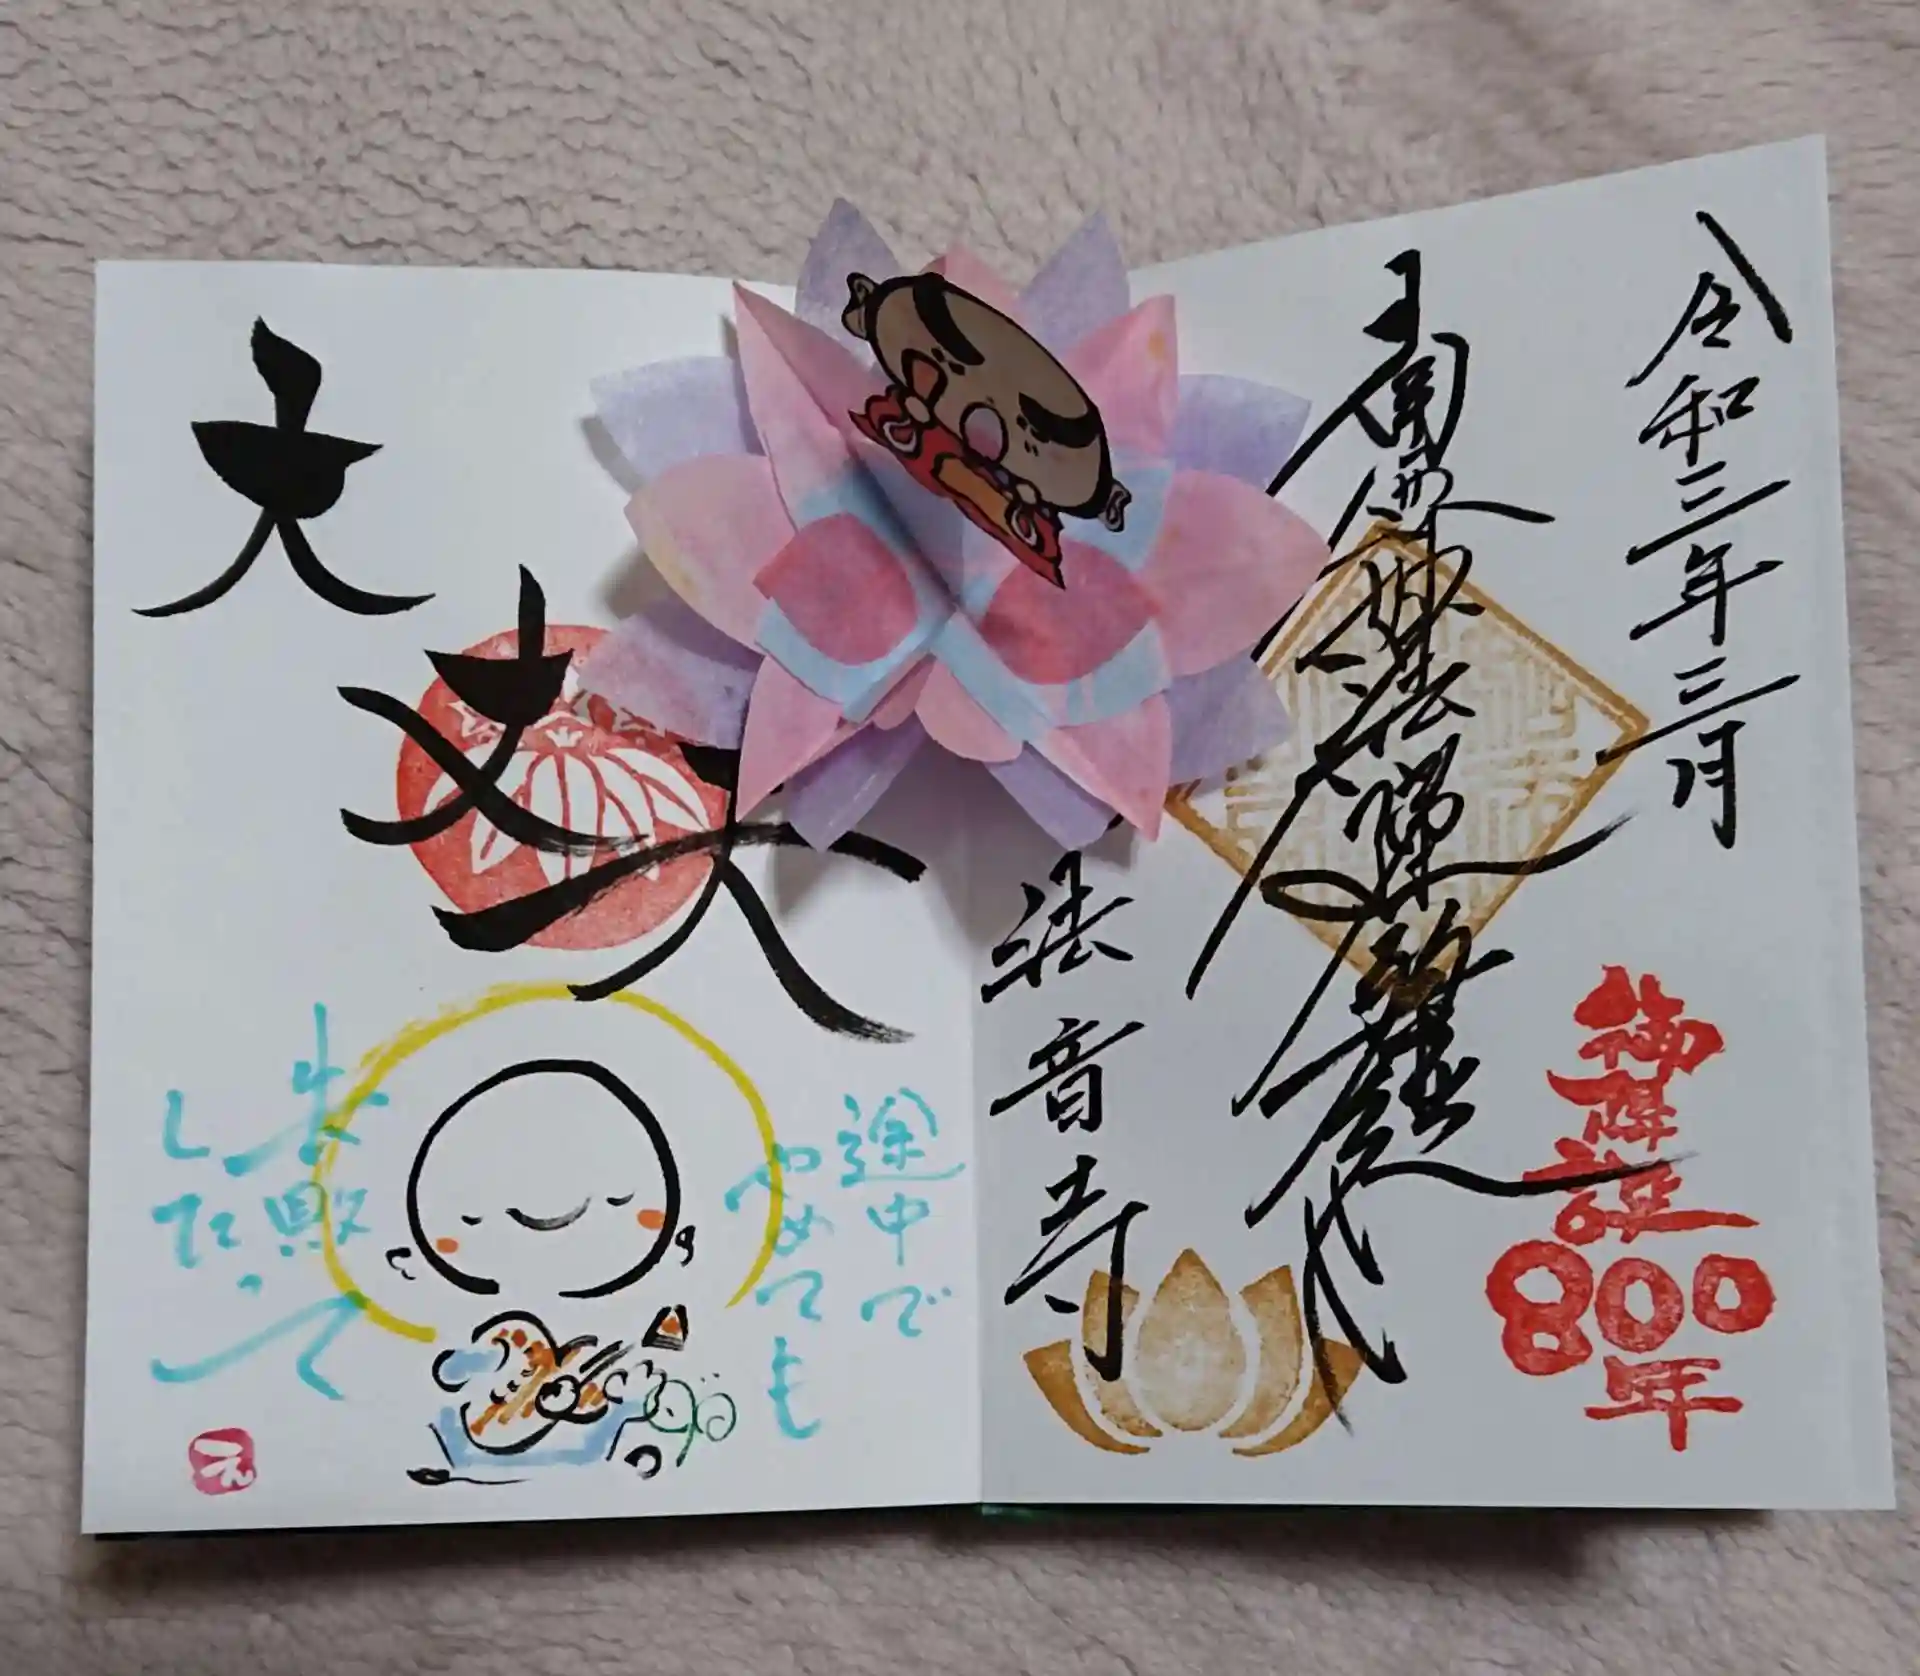 令和三年三月
南無妙法蓮華経
御降誕
800
年
法音寺
大丈夫
途中で
やめても
失敗
したって
え